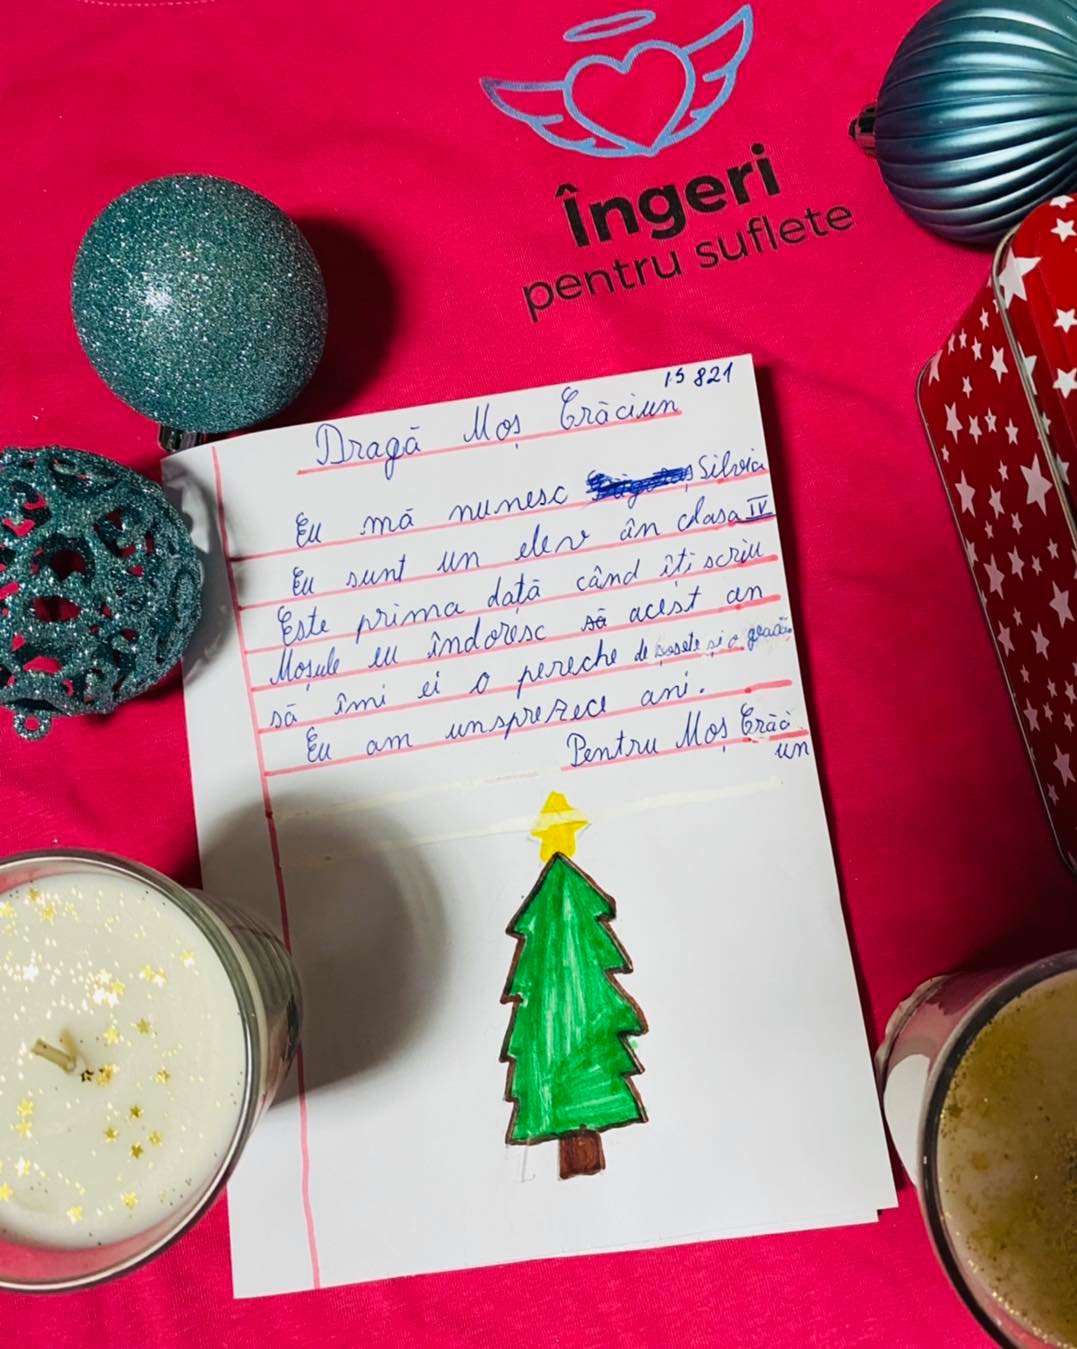 Îngeri
pentru suflete
15 821
Dragă Moș Crăciun
Eu mă numesc Silvia
Eu sunt un elev în clasa IV
Este prima dață când îți scriu
Moșule eu îndoresc să acest an
să îmi ei o pereche de șosete și o geacă.
Eu am unsprezece ani.
Pentru Moș Crăci
un